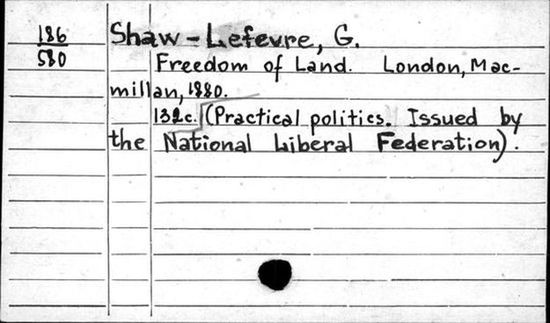 186
580
Shaw-Lefevre, G.
Freedom of Land. London, Mac-
millan, 1880.
132c. (Practical politics. Issued by
the National Liberal Federation).